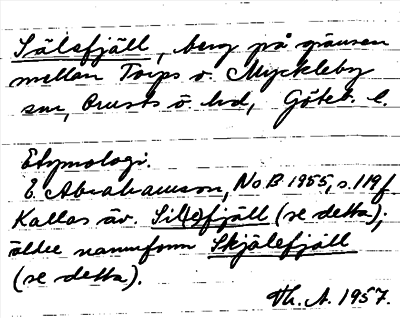 Sälsfjäll, berg på gränsen
mellan Torps o. Myckleby
snr, Orusts ö. hd, Göteb. l.
Etymologi.
E. Abrahamson, NoB 1955, s. 119 f.
Kallas äv. Sil(e)fjäll (se detta);
äldre namnform Skjälefjäll
(se detta).
Th. A. 1957.